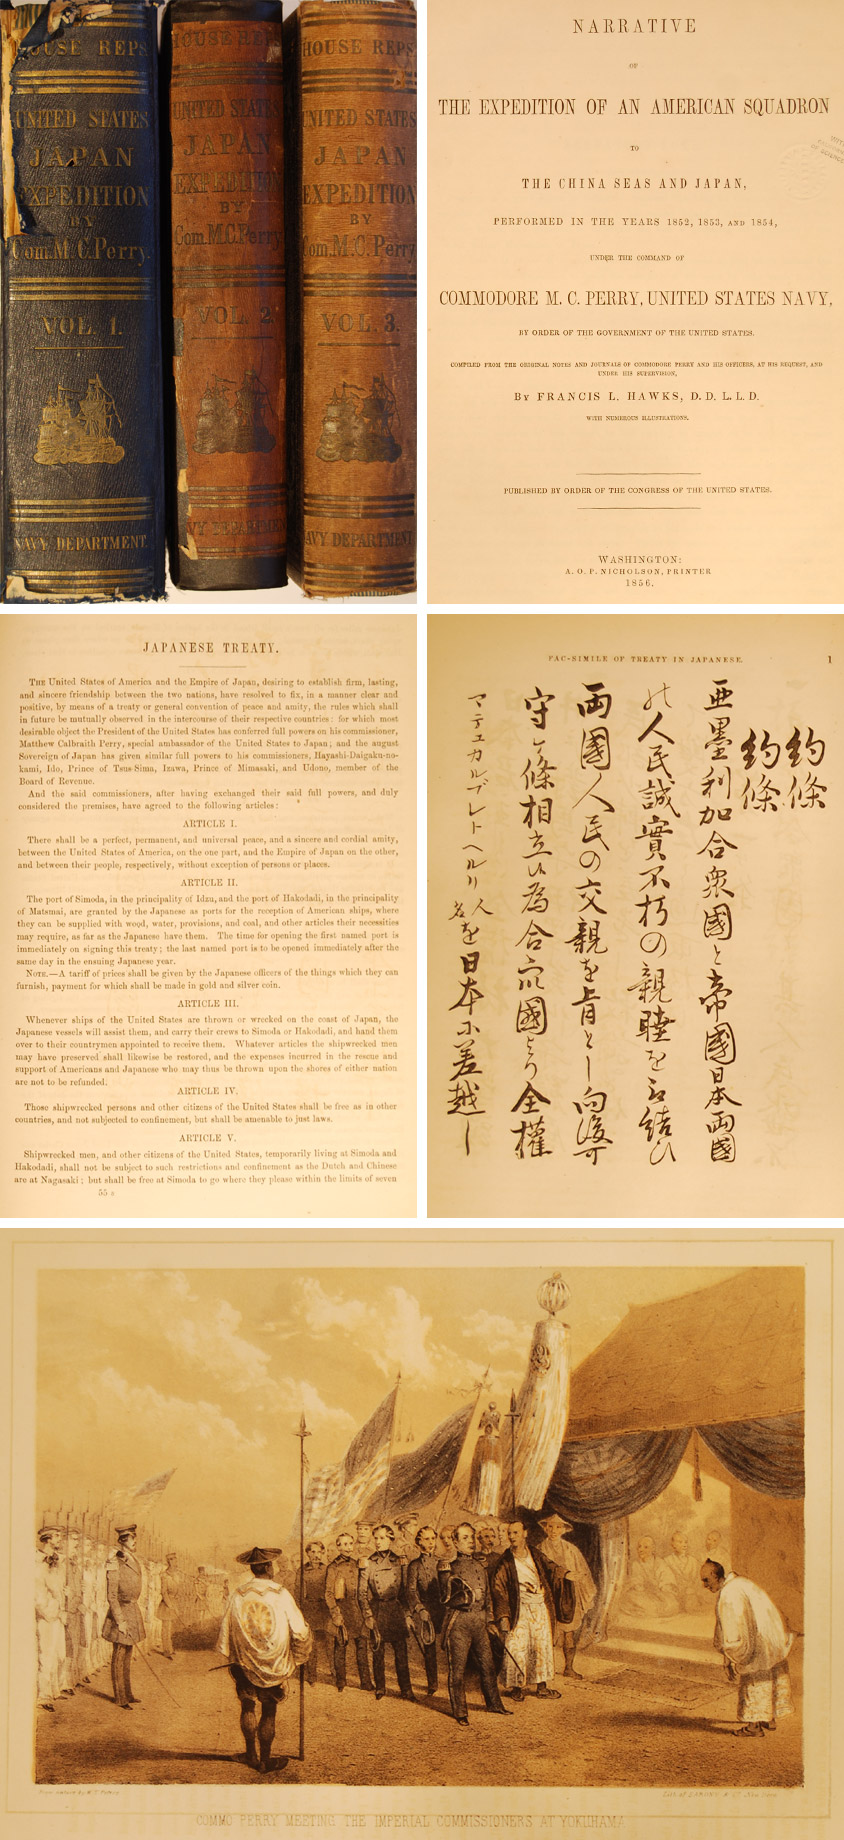 HOUSE REPS
UNITED STATES
JAPAN
EXPEDITION
BY
Com. M.C. Perry.
VOL. 1.
NAVY DEPARTMENT.
HOUSE REPS
UNITED STATES
JAPAN
EXPEDITION
BY
Com. M.C. Perry
VOL. 2.
NAVY DEPARTMENT
HOUSE REPS
UNITED STATES
JAPAN
EXPEDITION
BY
Com. M.C. Perry
VOL. 3.
NAVY DEPARTMENT
NARRATIVE
OF
THE EXPEDITION OF AN AMERICAN SQUADRON
TO
THE CHINA SEAS AND JAPAN,
PERFORMED IN THE YEARS 1852, 1853, AND 1854,
UNDER THE COMMAND OF
COMMODORE M. C. PERRY, UNITED STATES NAVY,
BY ORDER OF THE GOVERNMENT OF THE UNITED STATES.
COMPILED FROM THE ORIGINAL NOTES AND JOURNALS OF COMMODORE PERRY AND HIS OFFICERS, AT HIS REQUEST, AND
UNDER HIS SUPERVISION,
BY FRANCIS L. HAWKS, D. D. L. L. D.
WITH NUMEROUS ILLUSTRATIONS.
PUBLISHED BY ORDER OF THE CONGRESS OF THE UNITED STATES.
WASHINGTON:
A. O. P. NICHOLSON, PRINTER
1856.
JAPANESE TREATY.
THE United States of America and the Empire of Japan, desiring to establish firm, lasting,
and sincere friendship between the two nations, have resolved to fix, in a manner clear and
positive, by means of a treaty or general convention of peace and amity, the rules which shall
in future be mutually observed in the intercourse of their respective countries: for which most
desirable object the President of the United States has conferred full powers on his commissioner,
Matthew Calbraith Perry, special ambassador of the United States to Japan; and the august
Sovereign of Japan has given similar full powers to his commissioners, Hayashi-Daigaku-no-
kami, Ido, Prince of Tsus-Sima, Izawa, Prince of Mimasaki, and Udono, member of the
Board of Revenue.
And the said commissioners, after having exchanged their said full powers, and duly
considered the premises, have agreed to the following articles:
ARTICLE I.
There shall be a perfect, permanent, and universal peace, and a sincere and cordial amity,
between the United States of America, on the one part, and the Empire of Japan on the other,
and between their people, respectively, without exception of persons or places.
ARTICLE II.
The port of Simoda, in the principality of Idzu, and the port of Hakodadi, in the principality
of Matsmai, are granted by the Japanese as ports for the reception of American ships, where
they can be supplied with wood, water, provisions, and coal, and other articles their necessities
may require, as far as the Japanese have them. The time for opening the first named port is
immediately on signing this treaty; the last named port is to be opened immediately after the
same day in the ensuing Japanese year.
NOTE.—A tariff of prices shall be given by the Japanese officers of the things which they can
furnish, payment for which shall be made in gold and silver coin.
ARTICLE III.
Whenever ships of the United States are thrown or wrecked on the coast of Japan, the
Japanese vessels will assist them, and carry their crews to Simoda or Hakodadi, and hand them
over to their countrymen appointed to receive them. Whatever articles the shipwrecked men
may have preserved shall likewise be restored, and the expenses incurred in the rescue and
support of Americans and Japanese who may thus be thrown upon the shores of either nation
are not to be refunded.
ARTICLE IV.
Those shipwrecked persons and other citizens of the United States shall be free as in other
countries, and not subjected to confinement, but shall be amenable to just laws.
ARTICLE V.
Shipwrecked men, and other citizens of the United States, temporarily living at Simoda and
Hakodadi, shall not be subject to such restrictions and confinement as the Dutch and Chinese
are at Nagasaki; but shall be free at Simoda to go where they please within the limits of seven
FAC-SIMILE OF TREATY IN JAPANESE.
1
約條
約條
亜墨利加合衆國と帝國日本両國
の人民誠實不朽の親睦を取結ひ
両國人民の交親を旨とし向後可
守ヶ條相立候為合衆國より全權
マテュカルブレトヘルリ人名を日本に差越し
COMMO PERRY MEETING THE IMPERIAL COMMISSIONERS AT YOKUHAMA